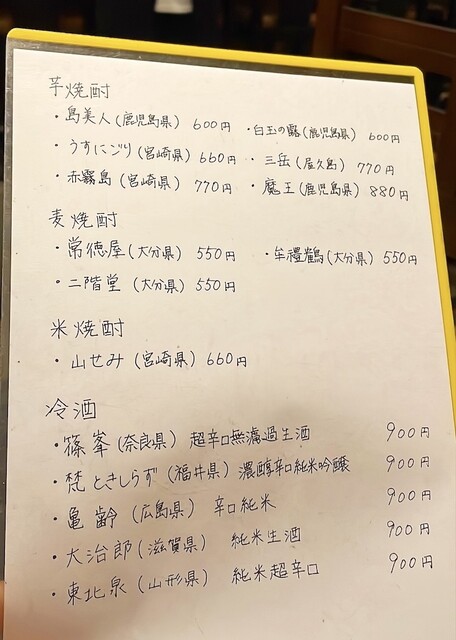 芋焼酎
・島美人(鹿児島県) 600円 ・白玉の露(鹿児島県) 600円
・うすにごり(宮崎県) 660円 ・三岳(屋久島) 770円
・赤霧島(宮崎県) 770円 ・魔王(鹿児島県) 880円
麦焼酎
・常徳屋(大分県) 550円 ・牟禮鶴(大分県) 550円
・二階堂(大分県) 550円
米焼酎
・山せみ(宮崎県) 660円
冷酒
・篠峯(奈良県) 超辛口無濾過生酒 900円
・梵ときしらず(福井県) 濃醇辛口純米吟醸 900円
・亀齢(広島県) 辛口純米 900円
・大治郎(滋賀県) 純米生酒 900円
・東北泉(山形県) 純米超辛口 900円